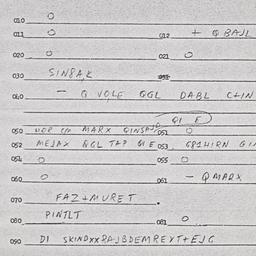 010 O
011 O 012 + Q BAJL
020 O 021 O
030 SIN8A,K
040 — Q VOLE QGL DABL C+IN
QI E
050 MARX QINSA 051 O
052 MEJAX QGL TAP QI E 053 G81HIRN GI
054 O 055 O
060 O 061 — QMARX
070 FAZ+MURET
080 PINTLT 081 O
090 DI SKINDXXRAJBDEMREYT+EJG